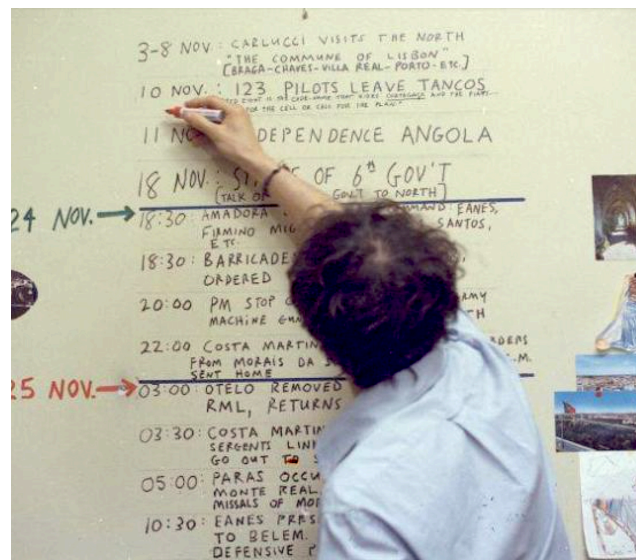 3-8 NOV: CARLUCCI VISITS THE NORTH
"THE COMMUNE OF LISBON"
[BRAGA-CHAVES-VILLA REAL-PORTO-ETC.]
10 NOV.: 123 PILOTS LEAVE TANCOS
IS THE CODE-NAME THAT AND THE
FOR THE CELL OR CALL FOR THE PLAN"
11 NO DEPENDENCE ANGOLA
18 NOV.: ST OF 6TH GOV'T
[TALK OF GOV'T TO NORTH]
24 NOV.
18:30: AMADORA MAND: EANES,
FIRMINO MIG SANTOS,
ETC.
18:30: BARRICADE
ORDERED
20:00 PM STOP RMY
MACHINE GUN TH
22:00 COSTA MARTIN RDERS
FROM MORAIS DA S .M.
SENT HOME
25 NOV.
03:00: OTELO REMOVED
RML, RETURNS
03:30: COSTA MARTIN
SERGENTS LIN
GO OUT TO
05:00: PARAS OCCU
MONTE REAL
MISSALS OF MO
10:30: EANES PRES
TO BELEM.
DEFENSIVE P